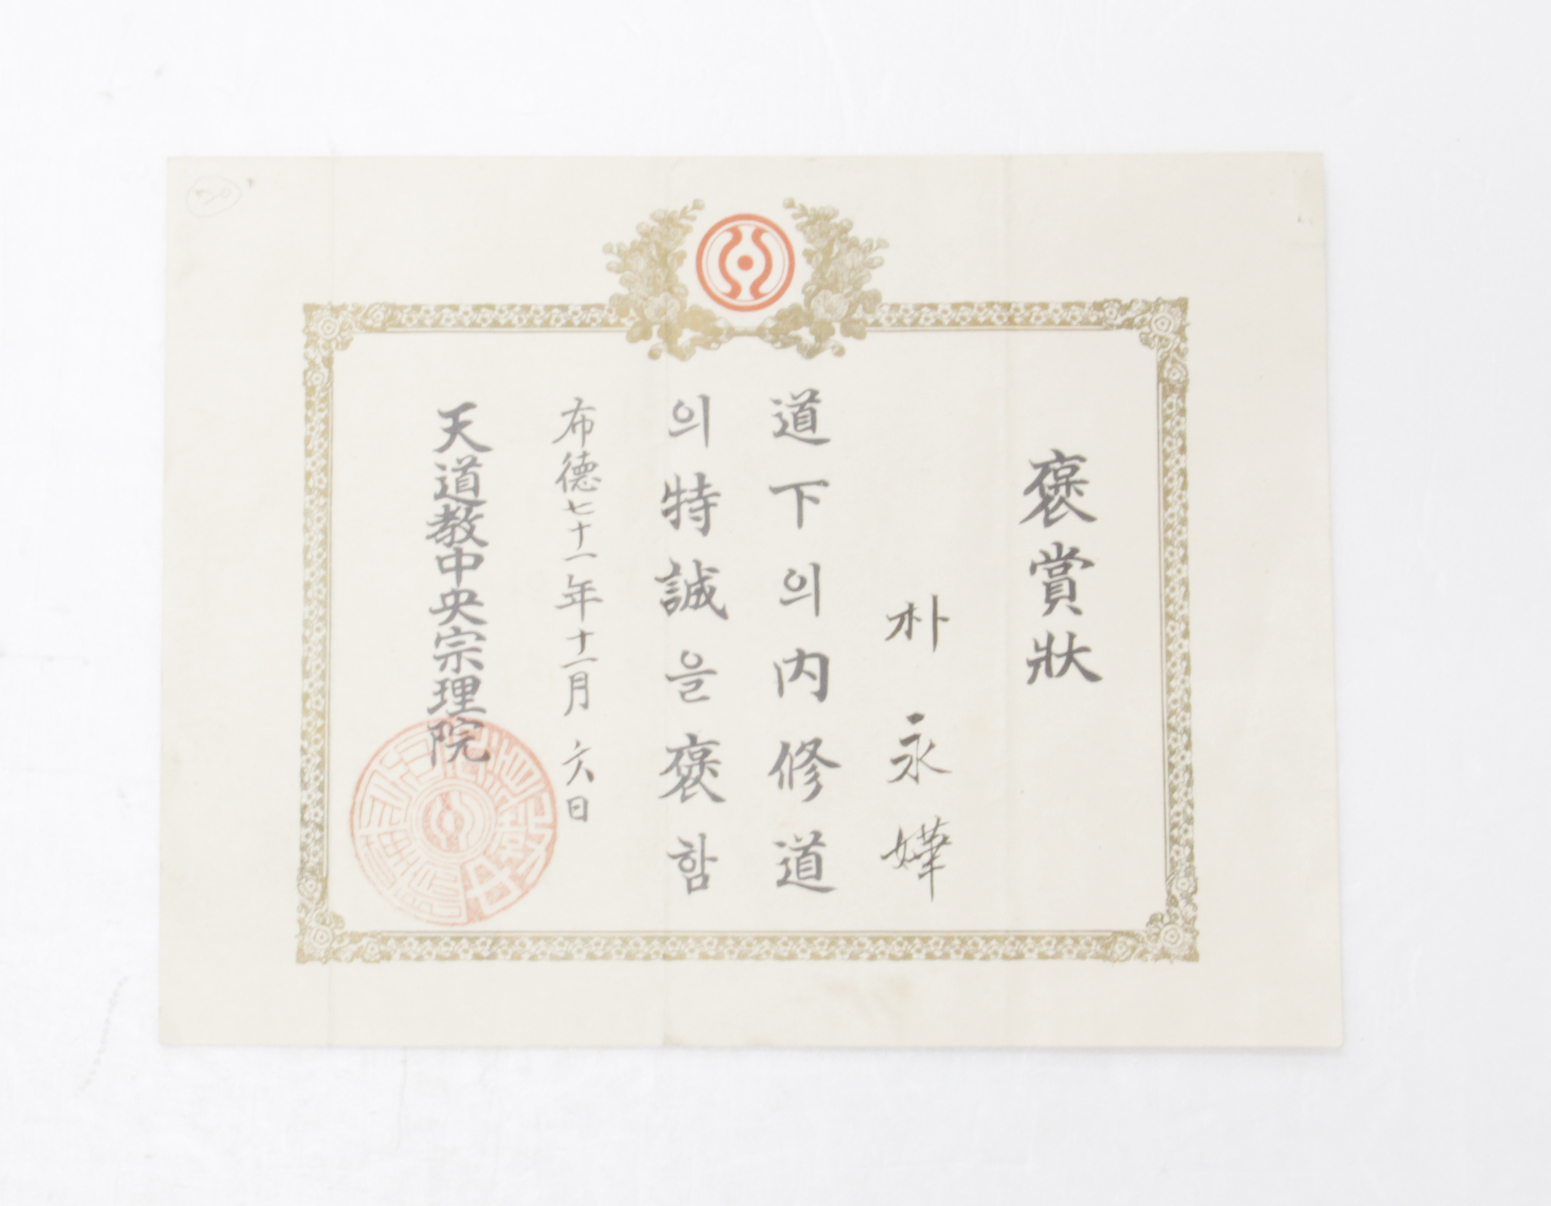 褒賞狀
朴永嬅
道下의內修道
의特誠을褒함
布德七十一年十一月六日
天道教中央宗理院